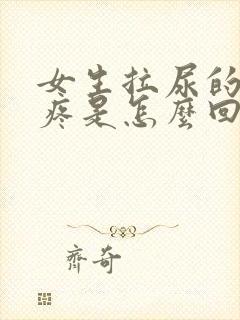 女生拉尿的
疼是怎麼回
齊奇